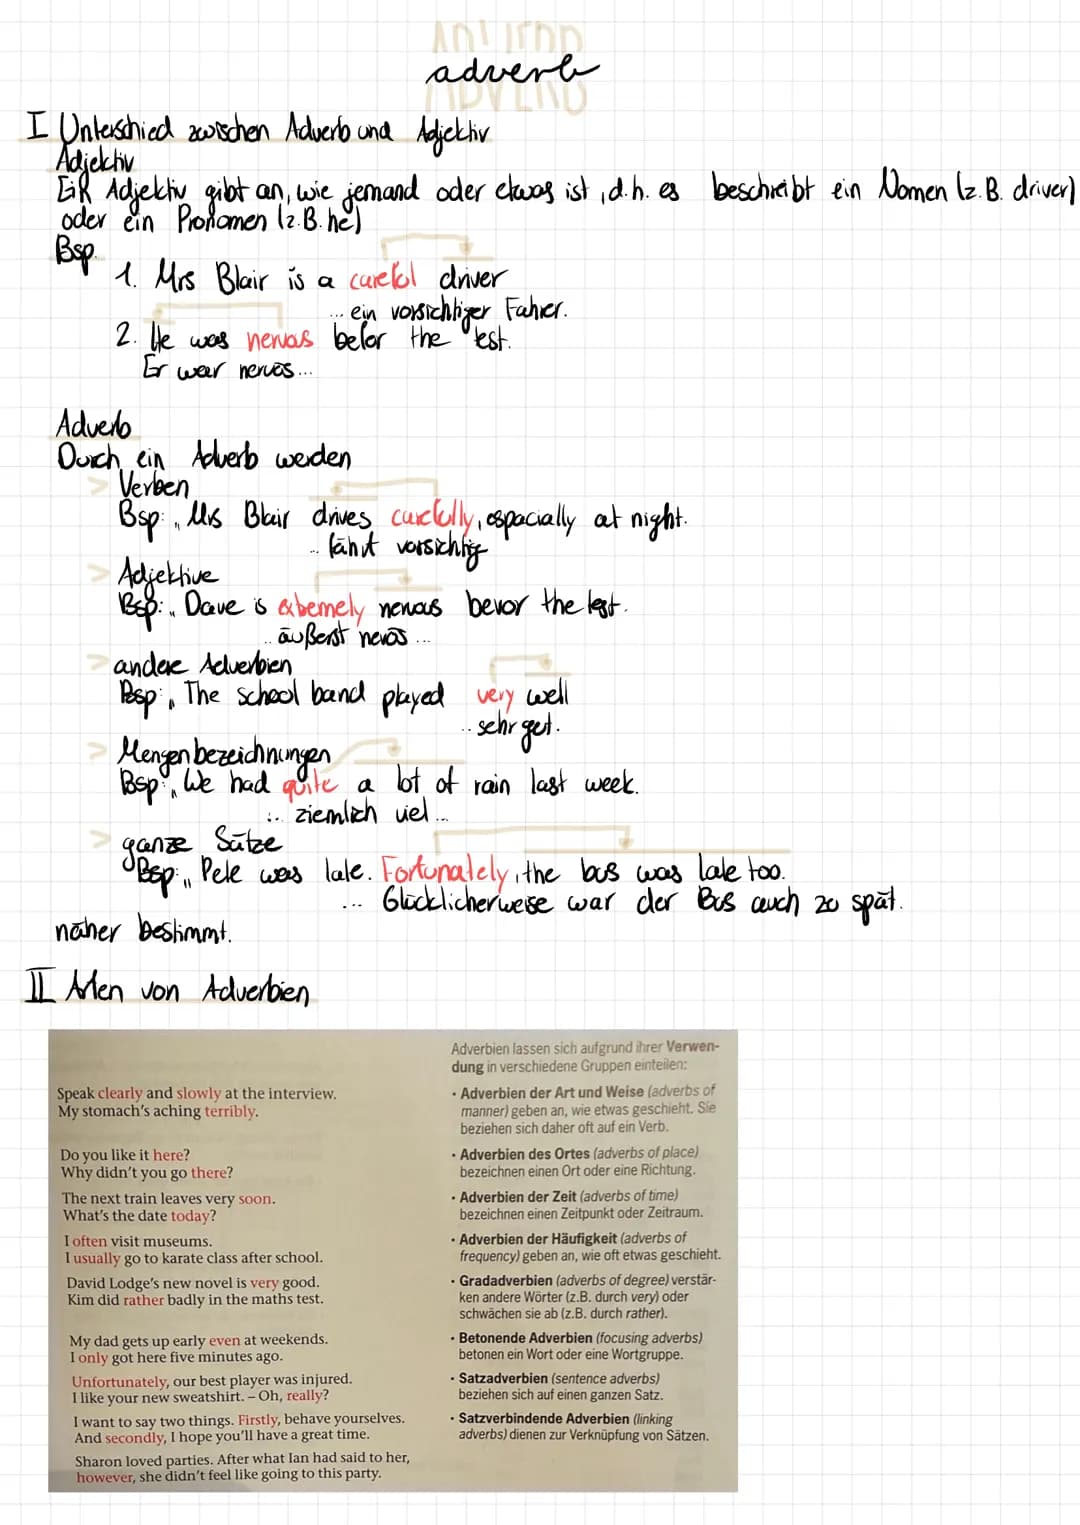 adverb
I Unterschied zwischen Adverb und Adjektiv
Adjektiv
Ein Adjektiv gibt an, wie jemand oder etwas ist, d.h. es beschreibt ein Nomen (z.B. driver)
oder ein Pronomen (z.B. he)
Bsp.
1. Mrs Blair is a careful driver
... ein vorsichtiger Fahrer.
2. He was nervos befor the test.
Er war nervös...
Adverb
Durch ein Adverb werden
> Verben
Bsp: „ Mrs Blair drives carefully, espacially at night.
.. fährt vorsichtig
> Adjektive
Bsp: „ Dave is extremely nervous bevor the test.
.. äußerst nevös ...
> andere Adverbien
Bsp: „ The school band played very well
.. sehr gut.
> Mengenbezeichnungen
Bsp: „ We had quite a lot of rain last week.
... ziemlich viel ...
> ganze Sätze
Bsp: „ Pete was late. Fortunately, the bus was late too.
... Glücklicherweise war der Bus auch zu spät.
näher bestimmt.
II Arten von Adverbien
Adverbien lassen sich aufgrund ihrer Verwen-
dung in verschiedene Gruppen einteilen:
Speak clearly and slowly at the interview.
My stomach's aching terribly.
• Adverbien der Art und Weise (adverbs of
manner) geben an, wie etwas geschieht. Sie
beziehen sich daher oft auf ein Verb.
Do you like it here?
Why didn't you go there?
• Adverbien des Ortes (adverbs of place)
bezeichnen einen Ort oder eine Richtung.
The next train leaves very soon.
What's the date today?
• Adverbien der Zeit (adverbs of time)
bezeichnen einen Zeitpunkt oder Zeitraum.
I often visit museums.
I usually go to karate class after school.
• Adverbien der Häufigkeit (adverbs of
frequency) geben an, wie oft etwas geschieht.
David Lodge's new novel is very good.
Kim did rather badly in the maths test.
• Gradadverbien (adverbs of degree) verstär-
ken andere Wörter (z.B. durch very) oder
schwächen sie ab (z.B. durch rather).
My dad gets up early even at weekends.
I only got here five minutes ago.
• Betonende Adverbien (focusing adverbs)
betonen ein Wort oder eine Wortgruppe.
Unfortunately, our best player was injured.
I like your new sweatshirt. – Oh, really?
• Satzadverbien (sentence adverbs)
beziehen sich auf einen ganzen Satz.
I want to say two things. Firstly, behave yourselves.
And secondly, I hope you'll have a great time.
• Satzverbindende Adverbien (linking
adverbs) dienen zur Verknüpfung von Sätzen.
Sharon loved parties. After what Ian had said to her,
however, she didn't feel like going to this party.